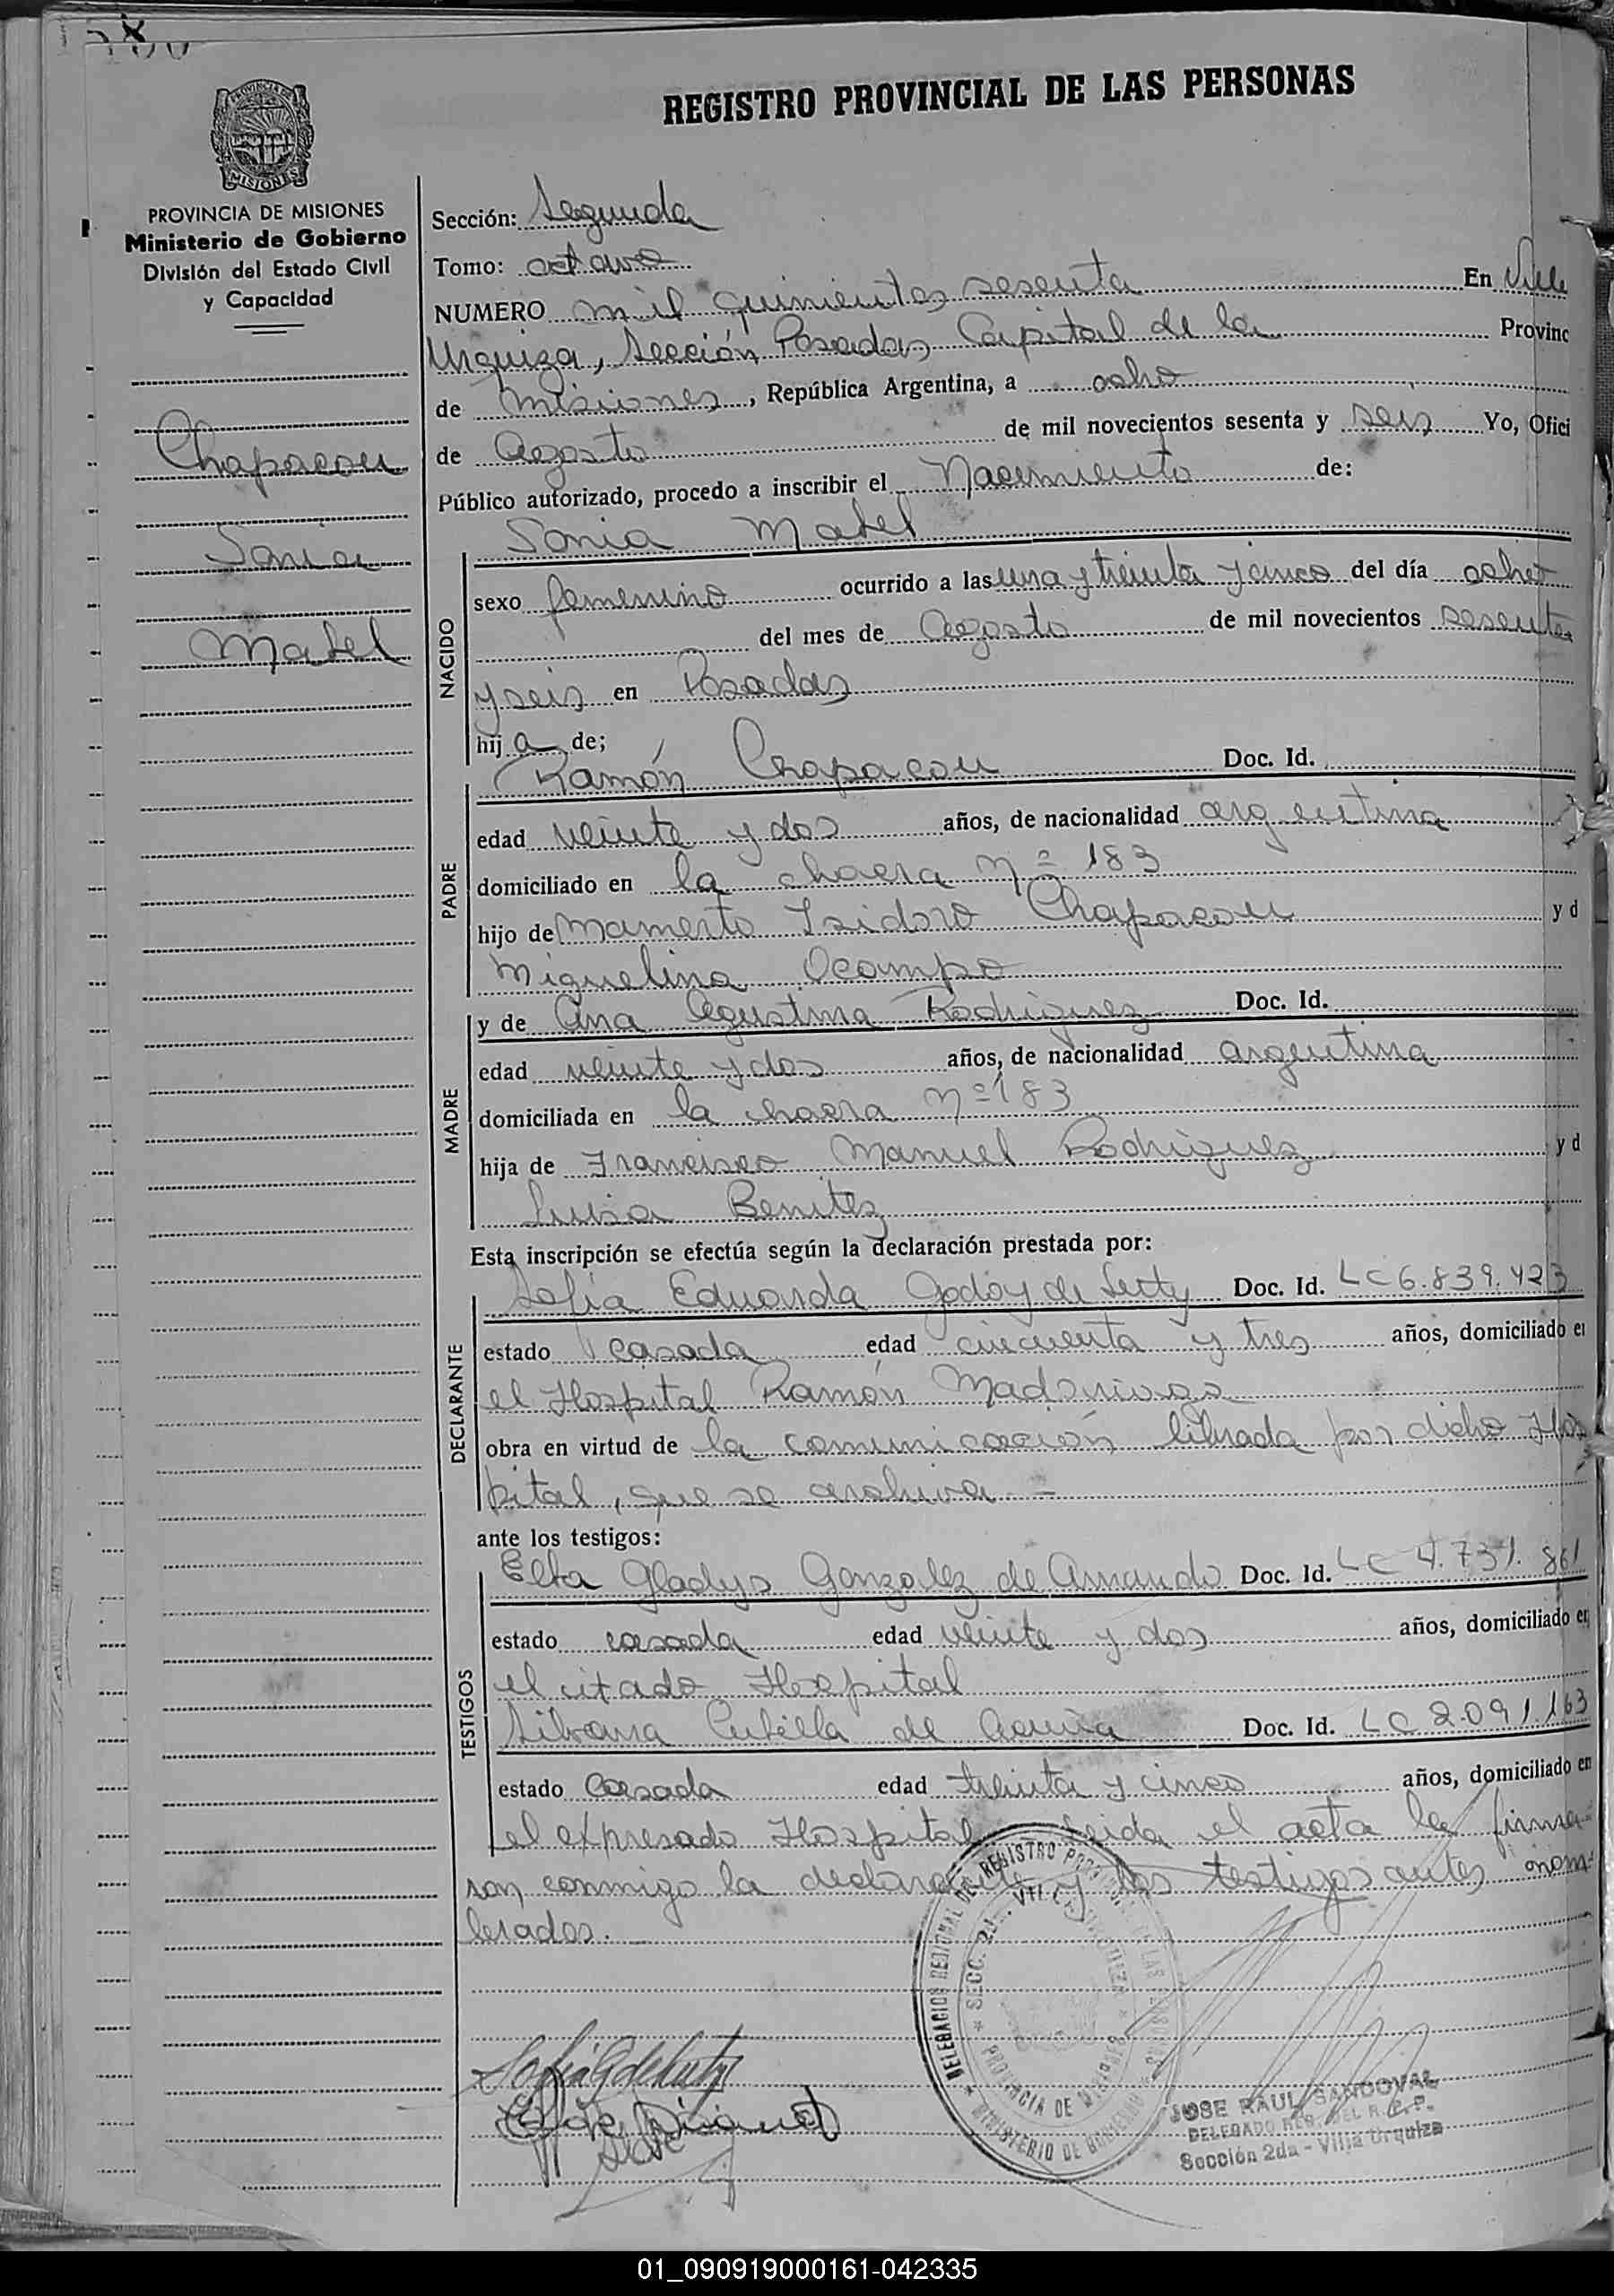 REGISTRO PROVINCIAL DE LAS PERSONAS
PROVINCIA DE MISIONES
Ministerio de Gobierno
División del Estado Civil
y Capacidad
Chapacou
Sonia
Mabel
Sección: Segunda
Tomo: octavo
NUMERO mil quinientos sesenta En Villa
Urquiza, Sección Posadas Capital de la Provinc
de Misiones, República Argentina, a ocho
de Agosto de mil novecientos sesenta y seis Yo, Ofici
Público autorizado, procedo a inscribir el Nacimiento de:
NACIDO
Sonia Mabel
sexo femenino ocurrido a las una y treinta y cinco del día ocho
del mes de Agosto de mil novecientos sesenta
y seis en Posadas
hija de;
PADRE
Ramón Chapacou Doc. Id.
edad veinte y dos años, de nacionalidad argentina
domiciliado en la chacra Nº 183
hijo de Mamerto Isidoro Chapacou y d
Miguelina Ocampo
MADRE
y de Ana Agustina Rodriguez Doc. Id.
edad veinte y dos años, de nacionalidad argentina
domiciliada en la chacra Nº 183
hija de Francisco Manuel Rodriguez y d
Luisa Benitez
Esta inscripción se efectúa según la declaración prestada por:
DECLARANTE
Sofia Eduarda Godoy de Doc. Id. LC 6.839.423
estado casada edad cincuenta y tres años, domiciliado en
el Hospital Ramón Madariaga
obra en virtud de la comunicación librada por dicho Hos
pital, que se archiva =
ante los testigos:
TESTIGOS
Elba Gladys Gonzalez de Doc. Id. LC 4.731.861
estado casada edad veinte y dos años, domiciliado en
el citado Hospital
Silvana Cubilla de Acuña Doc. Id. LC 2.091.163
estado casada edad treinta y cinco años, domiciliado en
el expresado Hospital leida el acta la firma-
ron conmigo la declarante y los testigos antes nom-
brados. —
DELEGACION REGIONAL DEL REGISTRO PROVINCIAL DE LAS PERSONAS
* SECC. 2da. VILLA URQUIZA *
PROVINCIA DE MISIONES
* MINISTERIO DE GOBIERNO *
JOSE RAUL SANDOVAL
DELEGADO REG. DEL R. P. P.
Sección 2da - Villa Urquiza
01_090919000161-042335